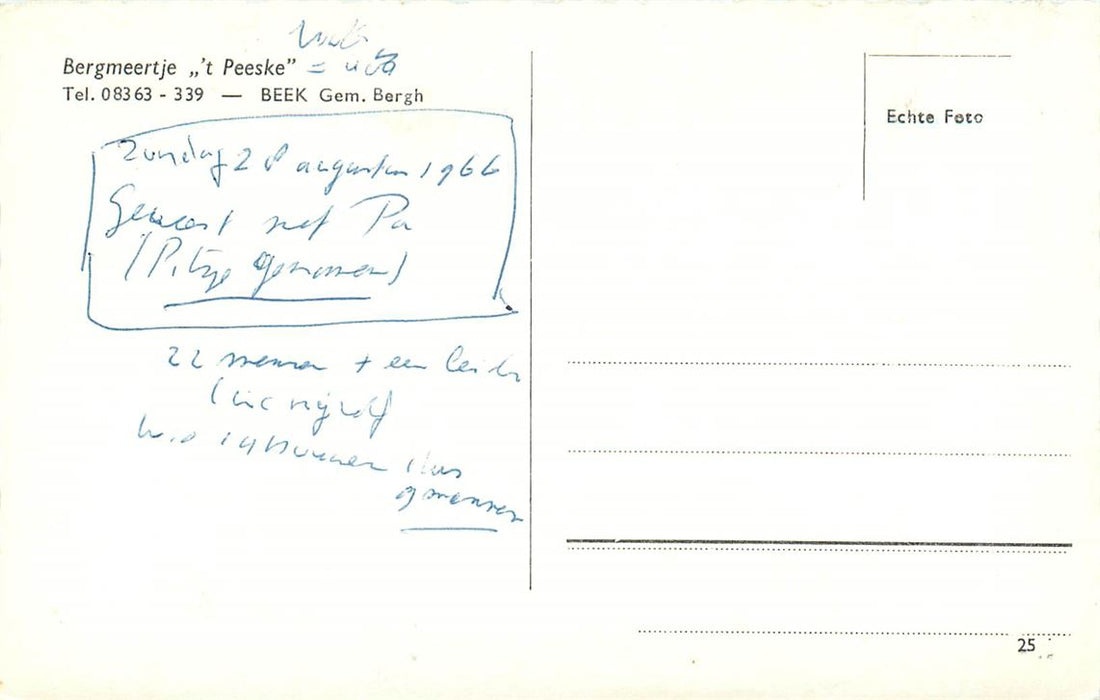 Bergmeertje „'t Peeske"
Tel. 08363 - 339 — BEEK Gem. Bergh
Echte Foto
Zondag 28 augustus 1966
Geweest met Pa
(Pitje genomen)
22 mannen + een leider
w.o 14 vrouwen dus
9 mannen
25